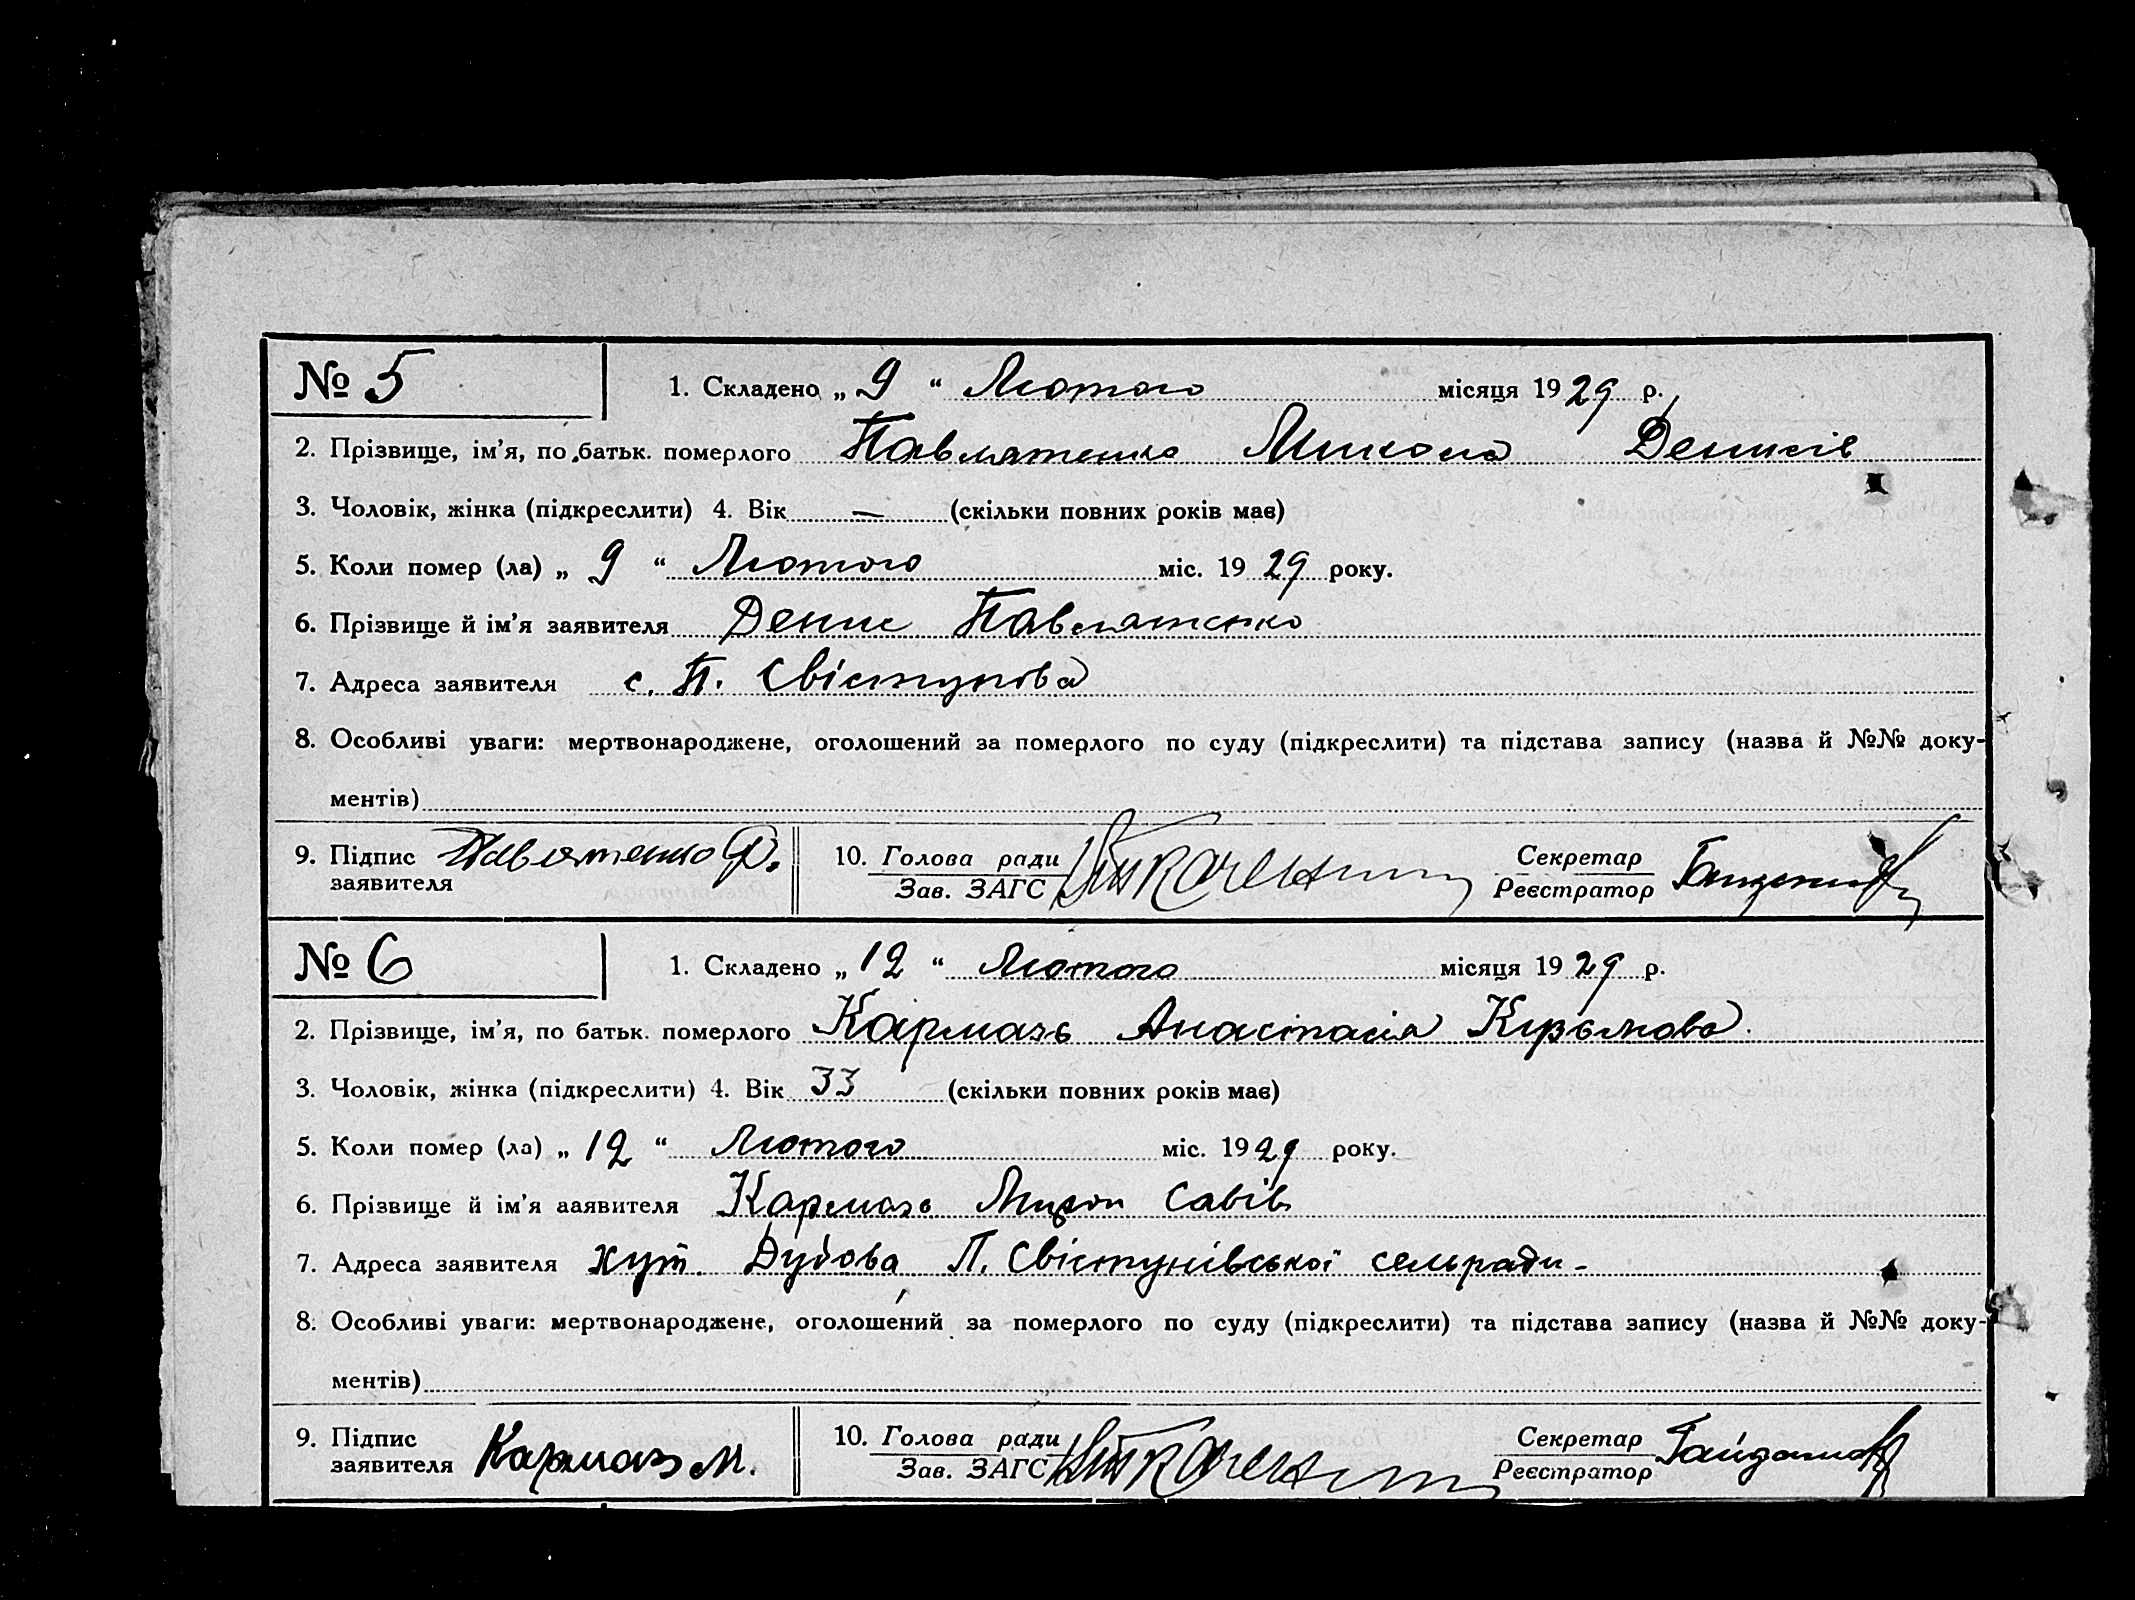 № 5 1. Складено „ 9 “ Лютого місяця 1929 р.
2. Прізвище, ім'я, по батьк. померлого Павлятенко Микола Денисів
3. Чоловік, жінка (підкреслити) 4. Вік — (скільки повних років має)
5. Коли помер (ла) „ 9 “ Лютого міс. 1929 року.
6. Прізвище й ім'я заявителя Денис Павлятенко
7. Адреса заявителя с. П. Свістунова
8. Особливі уваги: мертвонароджене, оголошений за померлого по суду (підкреслити) та підстава запису (назва й №№ доку-
ментів)
9. Підпис заявителя Павлятенко Д. 10. Голова ради Зав. ЗАГС Секретар Реєстратор
№ 6 1. Складено „ 12 “ Лютого місяця 1929 р.
2. Прізвище, ім'я, по батьк. померлого Кармазь Анастасія
3. Чоловік, жінка (підкреслити) 4. Вік 33 (скільки повних років має)
5. Коли помер (ла) „ 12 “ Лютого міс. 1929 року.
6. Прізвище й ім'я ааявителя Кармазь Мирон Савів
7. Адреса заявителя хут. Дубова П. Свістунівської сельради -
8. Особливі уваги: мертвонароджене, оголошений за померлого по суду (підкреслити) та підстава запису (назва й №№ доку-
ментів)
9. Підпис заявителя Кармазь М. 10. Голова ради Зав. ЗАГС Секретар Реєстратор